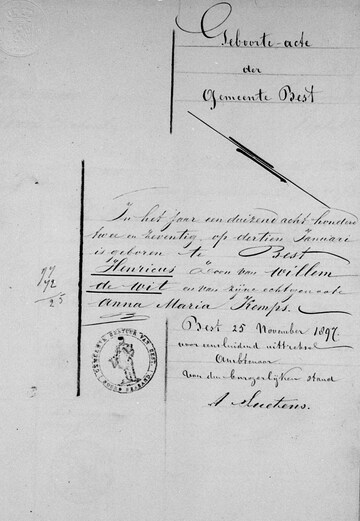 Geboorte-acte
der
Gemeente Best
In het jaar een duizend acht honderd
twee en zeventig, op dertien Januari
is geboren te Best
Henricus Zoon van Willem
de Wit en van zijne echtgenoote
Anna Maria Kemps.
97
72
25
Best 25 November 1897.
voor eensluidend uittreksel
Ambtenaar
van den burgerlijken stand
GEMEENTE BESTUUR VAN BEST